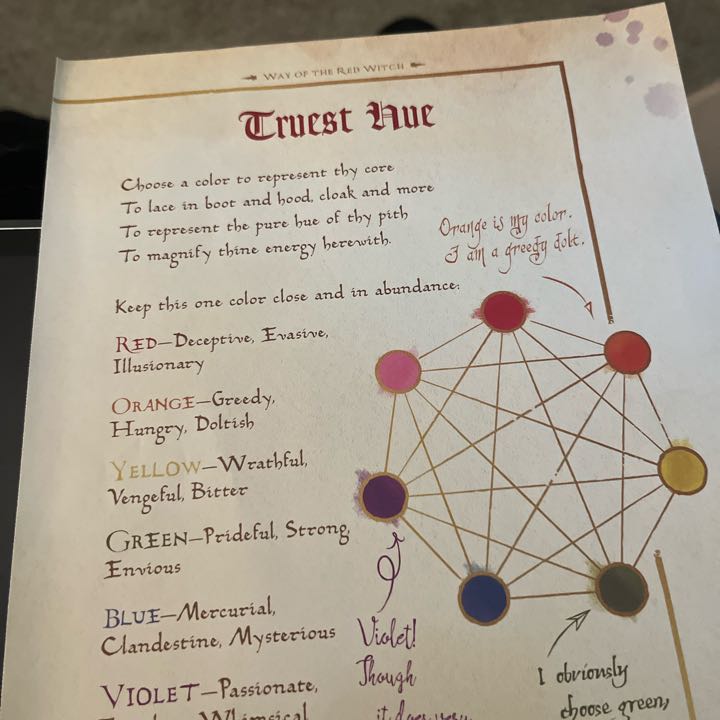 WAY OF THE RED WITCH
Truest Hue
Choose a color to represent thy core
To lace in boot and hood, cloak and more
To represent the pure hue of thy pith
To magnify thine energy herewith.
Orange is my color.
I am a greedy dolt.
Keep this one color close and in abundance:
RED—Deceptive, Evasive,
Illusionary
ORANGE—Greedy,
Hungry, Doltish
YELLOW—Wrathful,
Vengeful, Bitter
GREEN—Prideful, Strong,
Envious
BLUE—Mercurial,
Clandestine, Mysterious
VIOLET—Passionate,
Whimsical
Violet!
Though
it does
I obviously
choose green,